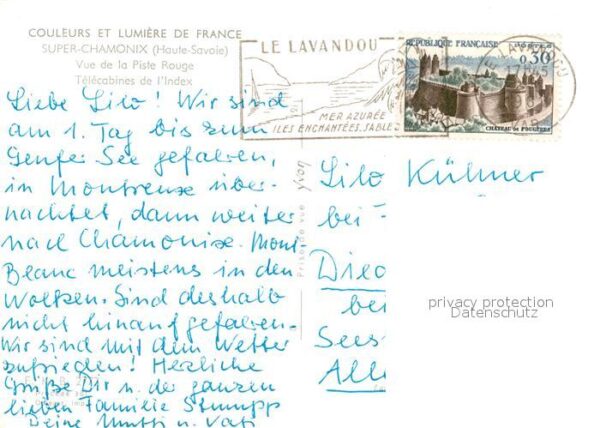 COULEURS ET LUMIÈRE DE FRANCE
SUPER-CHAMONIX (Haute-Savoie)
Vue de la Piste Rouge
Télécabines de l'Index
Liebe Lilo! Wir sind
am 1. Tag bis zum
Genfer See gefahren,
in Montreux über-
nachtet, dann weiter
nach Chamonix. Mont
Blanc meistens in den
Wolken. Sind deshalb
nicht hinaufgefahren.
Wir sind mit dem Wetter
zufrieden! Herzliche
Grüße Dir u. der ganzen
lieben Familie Stumpp
Deine Mutti u. Vati
LE LAVANDOU
MER AZURÉE
ILES ENCHANTÉES. SABLES
RÉPUBLIQUE FRANÇAISE
POSTES
0,30
CHÂTEAU DE FOUGÈRES
LE LAVANDOU
yvon
Prise de vue
Lilo Kühner
bei
bei
Sees
privacy protection
Datenschutz